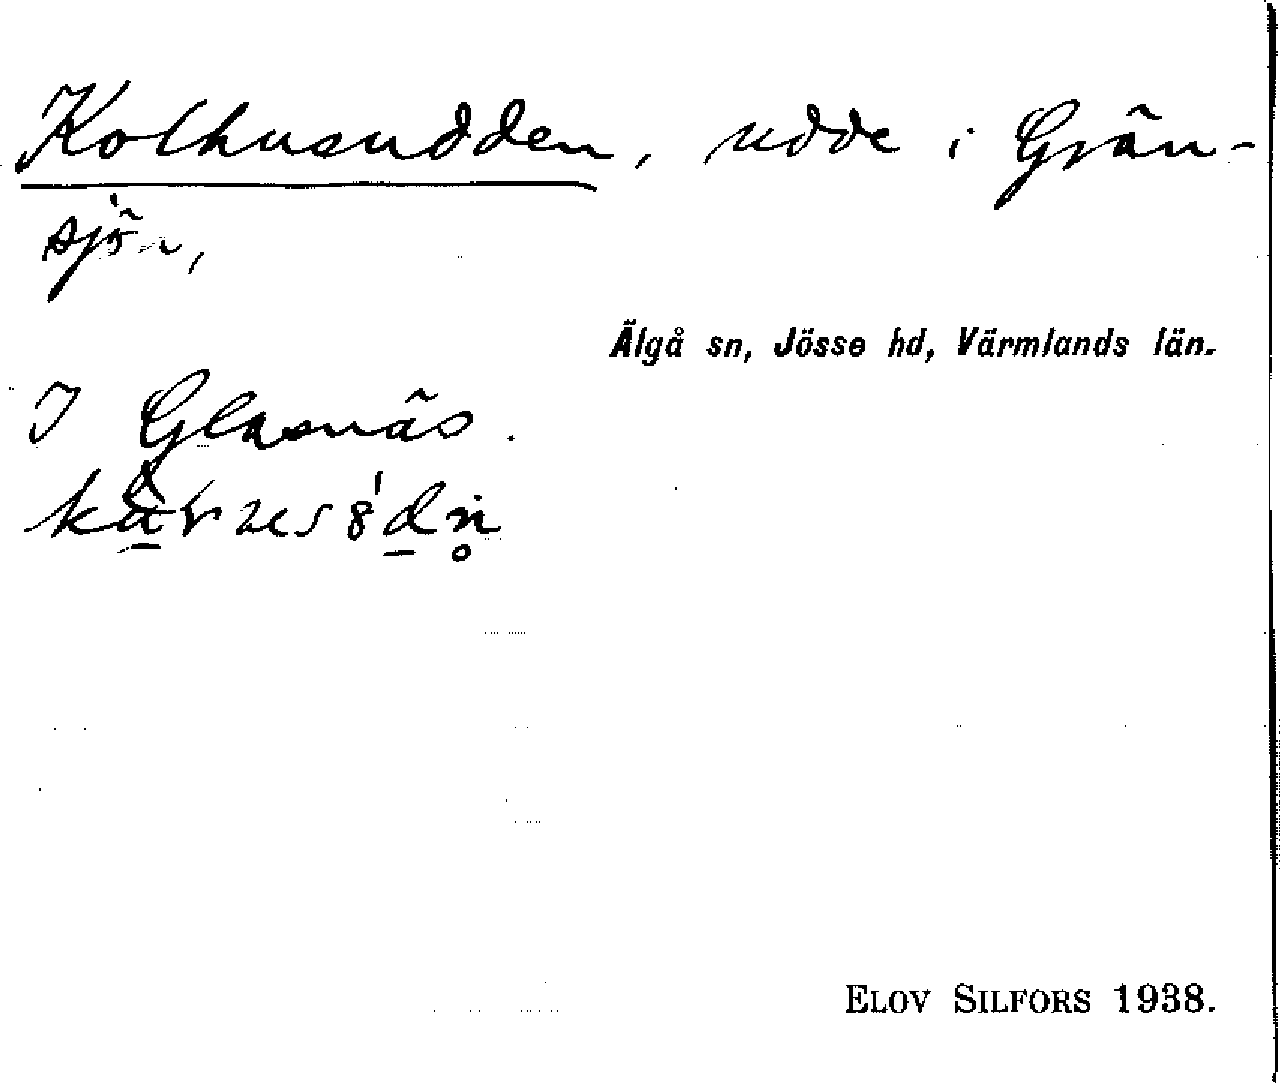 Kolhusudden, udde i Grän-
sjön,
Älgå sn, Jösse hd, Värmlands län.
I Glasnäs.
ELOV SILFORS 1938.